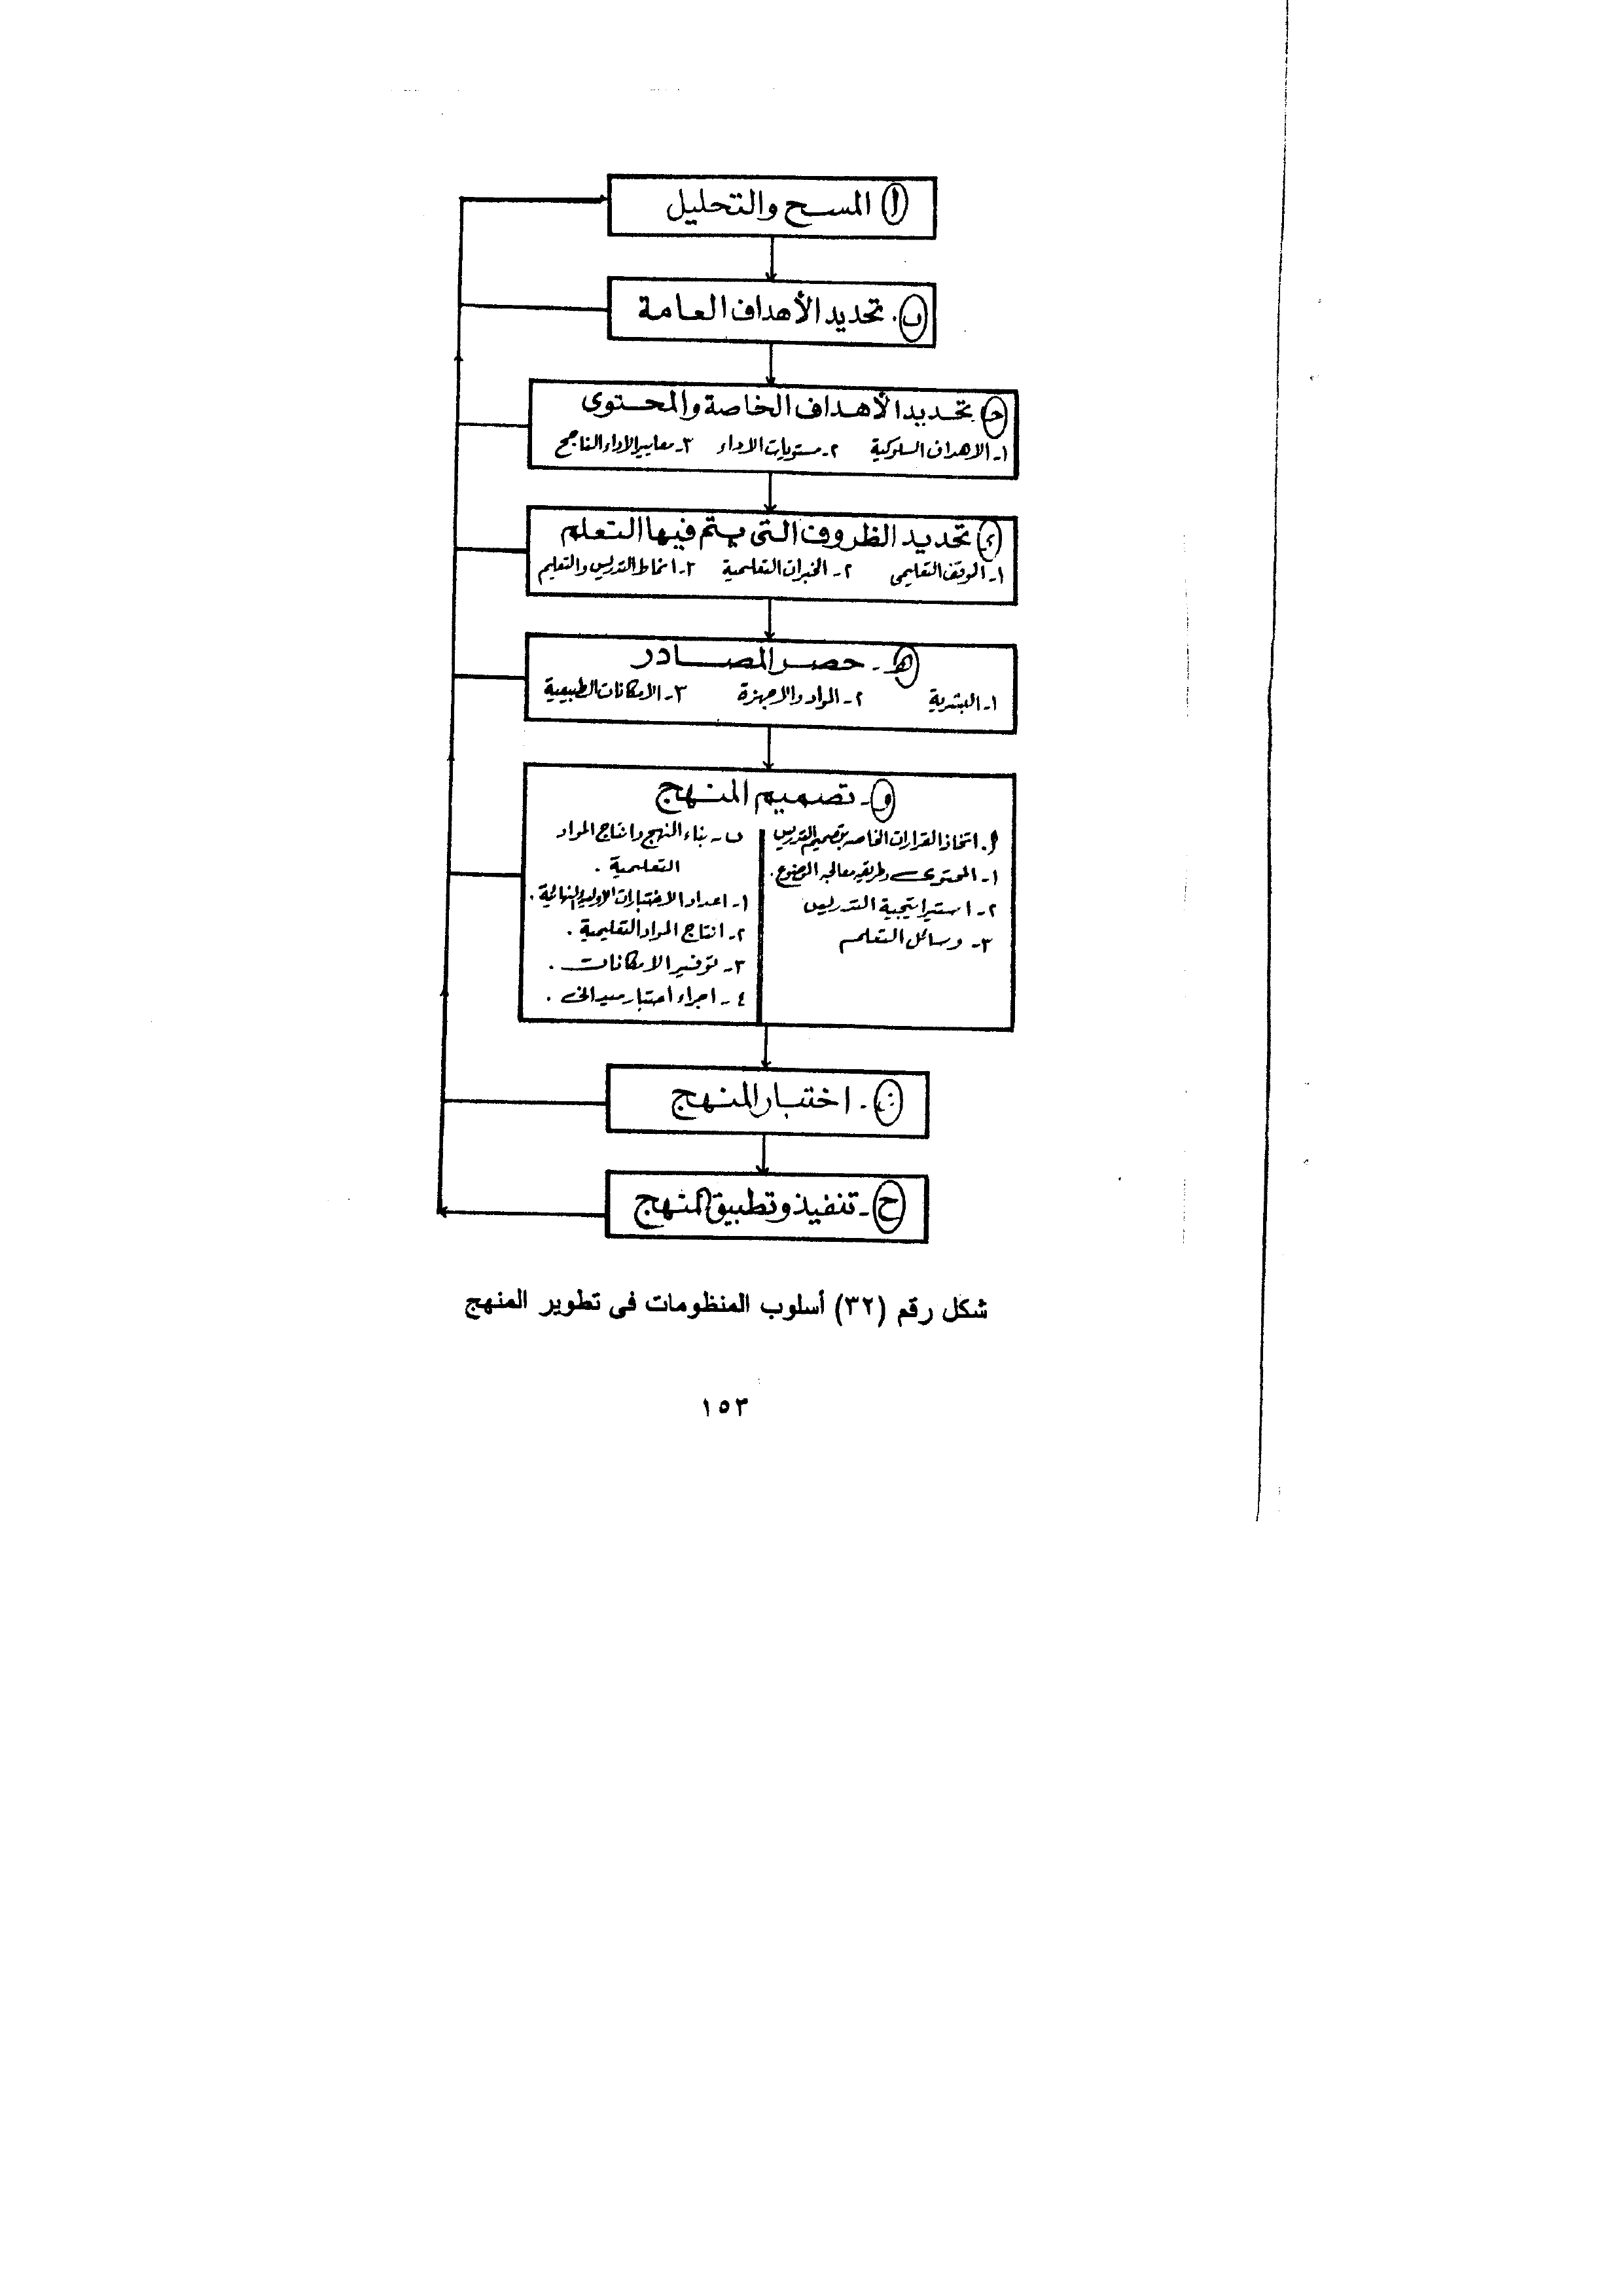 أ المسح والتحليل
ب. تحديد الأهداف العامة
ج. تحديد الأهداف الخاصة والمحتوى
١- الاهداف السلوكية ٢- مستويات الاداء ٣- معايير الاداء الناجح
د تحديد الظروف التى يتم فيها التعلم
١- الموقف التعليمى ٢- الخبرات التعليمية ٣- انماط التدريس والتعليم
هـ- حصر المصادر
١- البشرية ٢- المواد والاجهزة ٣- الامكانات الطبيعية
و- تصميم المنهج
أ. اتخاذ القرارات الخاصه بتصميم التدريس
١- المحتوى وطريقه معالجه الموضوع.
٢- استراتيجية التدريس
٣- وسائل التعلم
ب- بناء المنهج وانتاج المواد
التعلمية .
١- اعداد الاختبارات الاوليه والنهائية .
٢- انتاج المواد التعليمية .
٣- توفير الامكانات .
٤- اجراء اختبار ميدانى .
ز. اختبار المنهج
ح- تنفيذ وتطبيق المنهج
شكل رقم (٣٢) أسلوب المنظومات فى تطوير المنهج
١٥٣